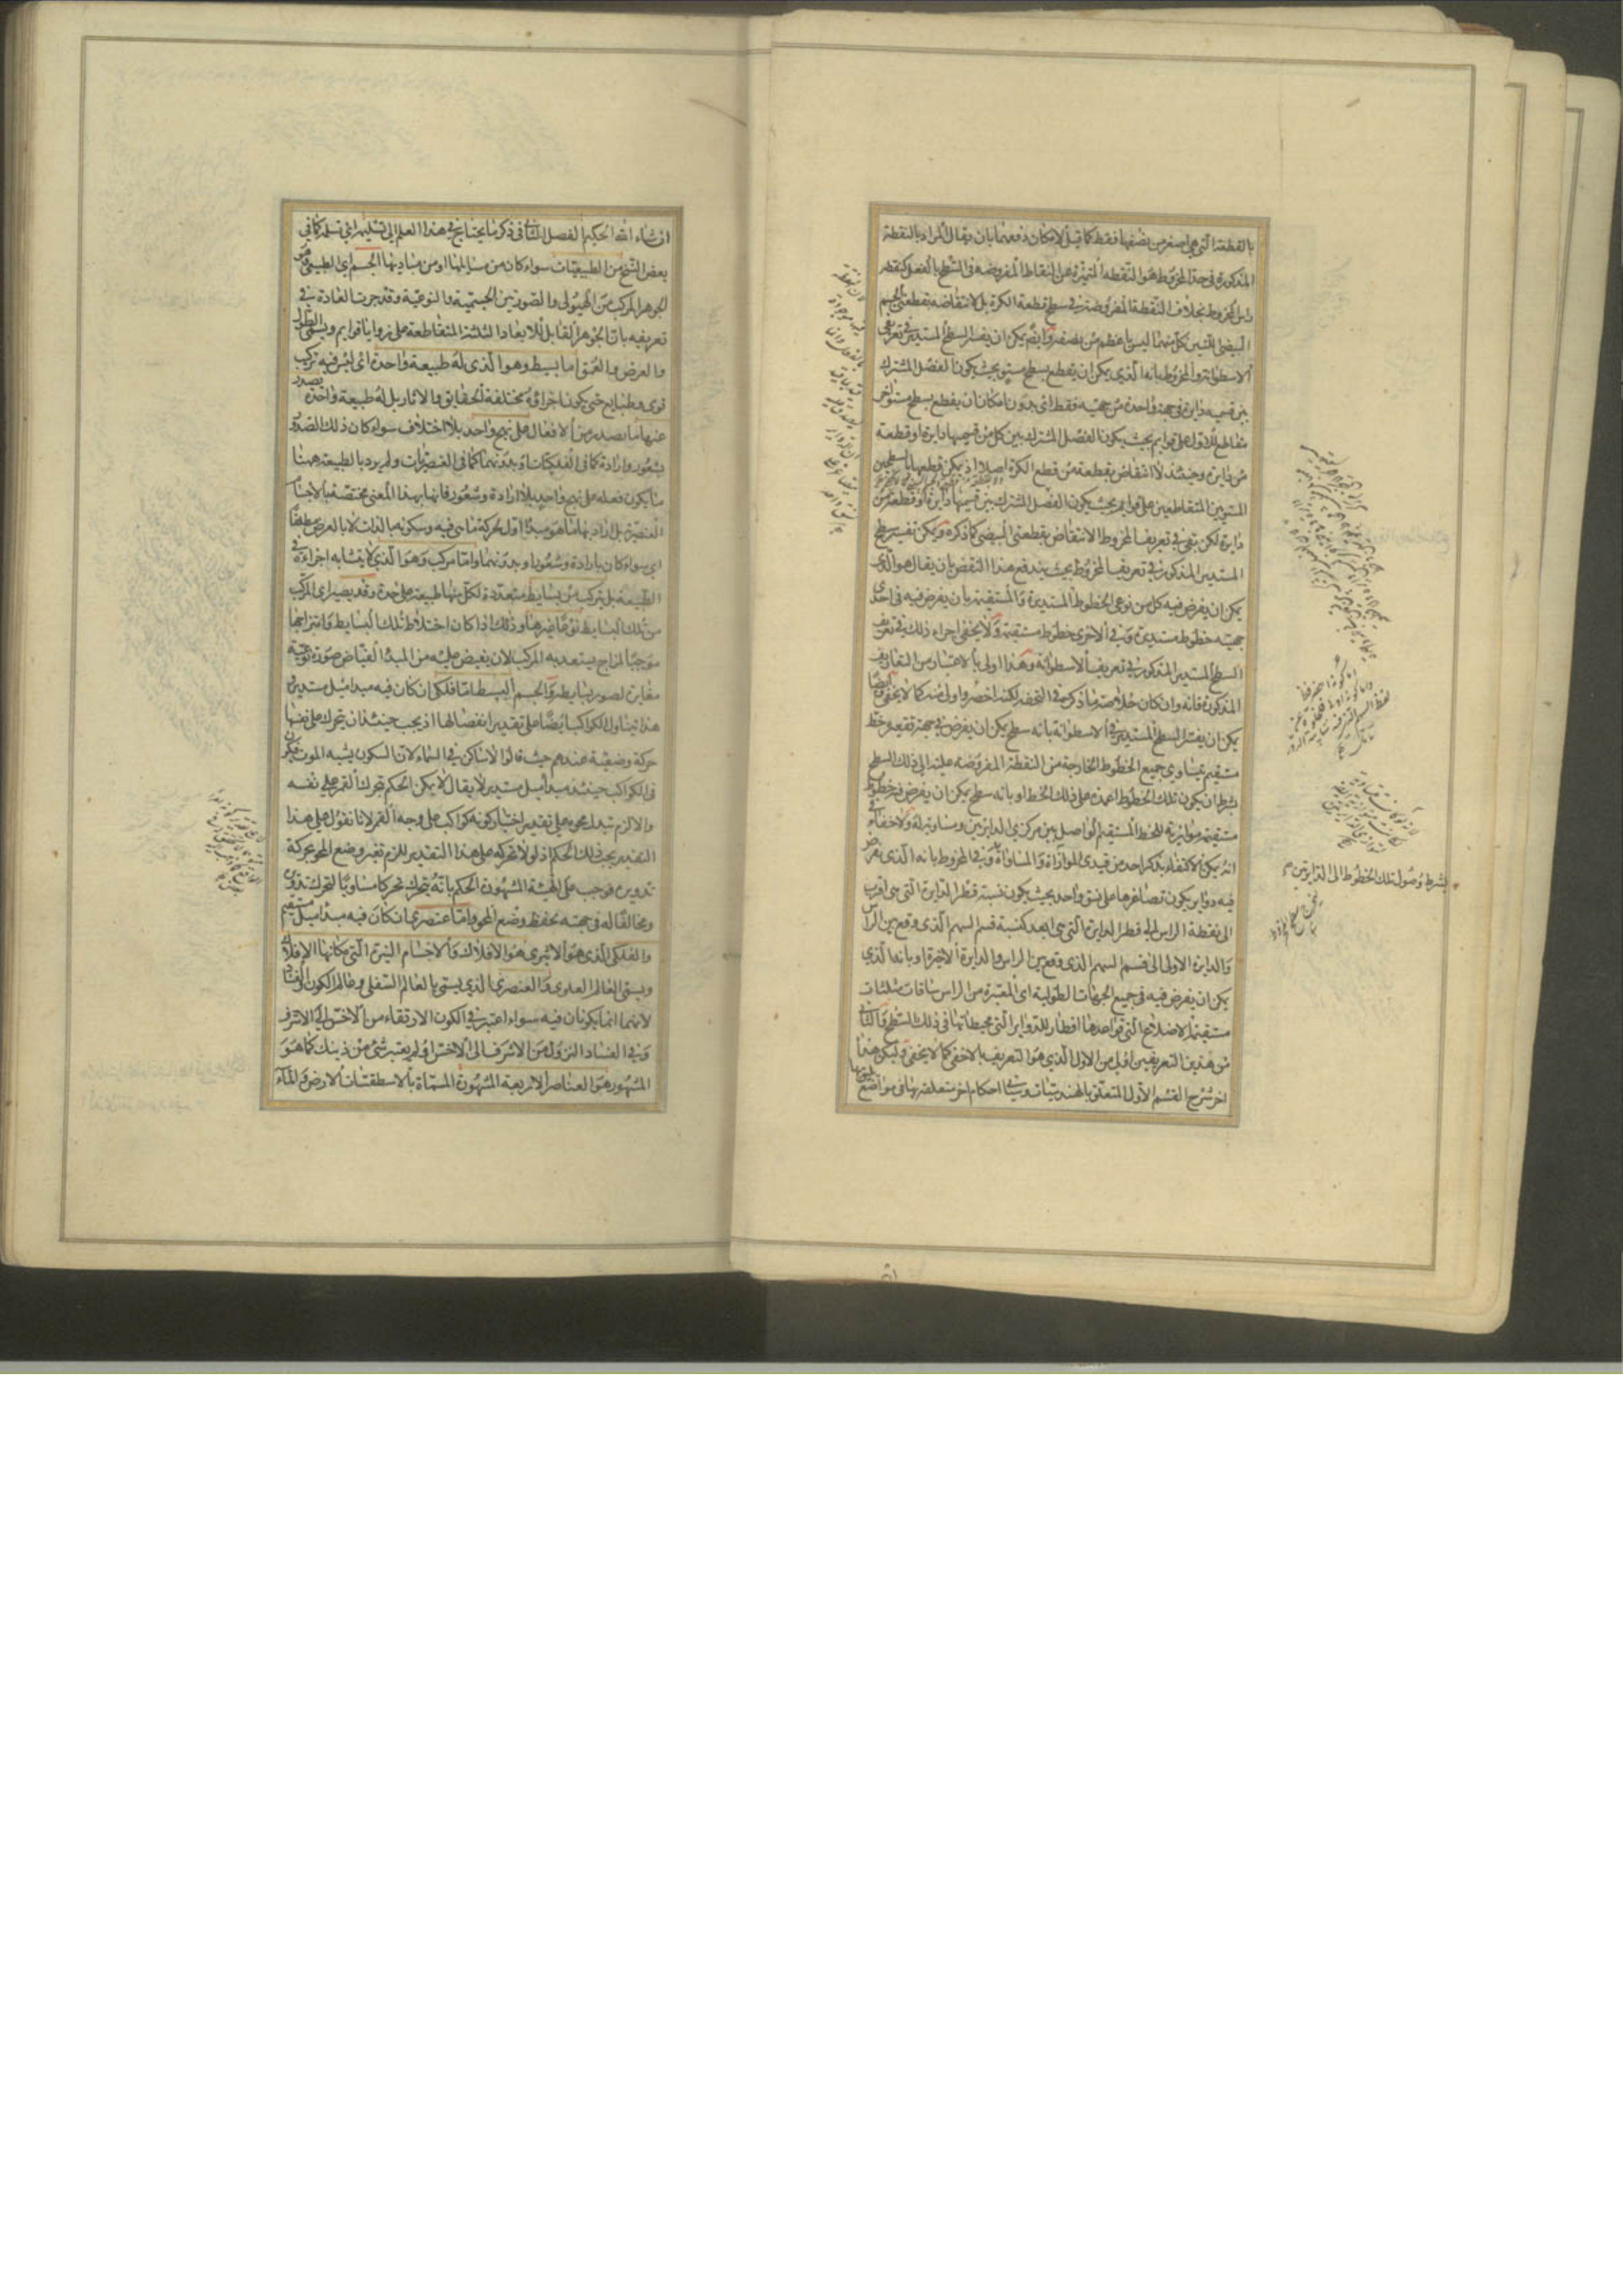 بالقطعة التي هي اصغر من نصفها فقط كما قيل لامكان دفعهما بان يقال المراد بالنقطة
المذكورة في حد المخروط هو النقطة المتميزة عن النقاط المفروضة في السطح بالفعل كنقطة
راس المخروط بخلاف النقطة المفروضة في سطح قطعة الكرة بل لانتقاضه بقطعتي الجسم
البيضي اللتين كل منهما ليس باعظم من نصفه وايضا يمكن ان يفسر السطح المستدير في تعريفي
الاسطوانة والمخروط بانه الذي يمكن ان يقطع بسطح مستو بحيث يكون الفصل المشترك
بين قسميه دايرة في جهة واحدة من جهتيه فقط اي بدون امكان ان يقطع بسطح مستو اخر
مقاطع للاول على قوايم بحيث يكون الفصل المشترك بين كل من قسميها دايرة او قطعة
من دايرة وحينئذ لا انتقاض بقطعة من قطع الكرة اصلا اذ يمكن قطعها بالسطحين
المستويين المتقاطعين على قوايم بحيث يكون الفصل المشترك بين قسميها دايرة او قطعة من
دايرة لكن بقي في تعريف المخروط الانتقاض بقطعتي البيضي كما ذكره ويمكن تفسير سطح
المستدير المذكور في تعريف المخروط بحيث يندفع هذا النقض بان يقال هو الذي
يمكن ان يفرض فيه كل من نوعي الخطوط المستديرة والمستقيمة بان يفرض فيه في احدى
جهتيه خطوط مستديرة وفي الاخرى خطوط مستقيمة ولا يخفى اجراء ذلك في تعريف
السطح المستدير المذكور في تعريف الاسطوانة وهذا اولى بالاعتبار من التعاريف
المذكورة فانه وان كان خلاصة ما ذكره في التحفة لكنه اخصر واولى منه كما لا يخفى وايضا
يمكن ان يفسر السطح المستدير في الاسطوانة بانه سطح يمكن ان يفرض في جهة تقعيره خط
مستقيم يتساوى جميع الخطوط الخارجة من النقطة المفروضة عليه الى ذلك السطح
بشرط ان يكون تلك الخطوط اعمدة على ذلك الخط او بانه سطح يمكن ان يفرض فيه خطوط
مستقيمة موازية للخط المستقيم الواصل بين مركزي الدايرتين ومساوية له ولا خفاء في
انه يمكن الاكتفاء بذكر احد من قيدي الموازاة والمساواة وفي المخروط بانه الذي يفرض
فيه دواير يكون تصاغرها على نسق واحد بحيث يكون نسبة قطر الدايرة التي هي اقرب
الى نقطة الراس الى قطر الدايرة التي هي ابعد كنسبة قسم السهم الذي وقع بين الراس
والدايرة الاولى الى قسم السهم الذي وقع بين الراس والدايرة الاخيرة او بانه الذي
يمكن ان يفرض فيه في جميع الجهات الطولية اي المعتبرة من الراس ساقات مثلثات
مستقيمة الاضلاع التي قواعدها اقطار للدواير التي محيطاتها في ذلك السطح والثاني
من هذين التعريفين اقبل من الاول الذي هو التعريف بالاخفى كما لا يخفى وليكن هذا
اخر شرح القسم الاول المتعلق بالهندسيات وسياتي احكام اخر متعلقة بها في مواضع تليق بها
بشرط وصول تلك الخطوط الى الدايرتين
ان شاء الله الحكيم الفصل الثاني في ذكر ما يحتاج في هذا العلم الى تسليمه اي تسلمه كما في
بعض النسخ من الطبيعيات سواء كان من مسايلها او من مباديها الجسم اي الطبيعي هو
الجوهر المركب من الهيولى والصورتين الجسمية والنوعية وقد جرت العادة في
تعريفه بانه الجوهر القابل للابعاد الثلثة المتقاطعة على زوايا قوايم ويسمى الطول
والعرض والعمق اما بسيط وهو الذي له طبيعة واحدة اي ليس فيه تركيب
قوى وطبايع حتى يكون اجزاؤه مختلفة الحقايق والاثار بل له طبيعة واحدة يصدر
عنها ما يصدر من الافعال على نهج واحد بلا اختلاف سواء كان ذلك الصدور
بشعور وارادة كما في الفلكيات او بدونهما كما في العنصريات ولم يرد بالطبيعة ههنا
ما يكون فعله على نهج واحد بلا ارادة وشعور فانها بهذا المعنى مختصة بالاجسام
العنصرية بل اراد بها ما هو مبدا اول لحركة ما هي فيه وسكونه بالذات لا بالعرض مطلقا
اي سواء كان بارادة وشعور او بدونهما واما مركب وهو الذي لا يتشابه اجزاءه في
الطبيعة بل تركب من بسايط متعددة لكل منها طبيعة على حدة وقد يصير اي المركب
من تلك البسايط نوعا غيرها وذلك اذا كان اختلاط تلك البسايط وامتزاجها
موجبا لمزاج يستعد به المركب لان يفيض عليه من المبدا الفياض صورة نوعية
مغايرة لصور بسايطه والجسم البسيط اما فلكي ان كان فيه مبدا ميل مستدير
هذا يتناول الكواكب ايضا على تقدير انفصالها اذ يجب حينئذ ان يتحرك على نفسها
حركة وضعية عندهم حيث قالوا لا ساكن في السماء لان السكون يشبه الموت فيكون
في الكواكب حينئذ مبدا ميل مستدير لا يقال لا يمكن الحكم بتحرك القمر على نفسه
والا لزم تبدل محوه على تقدير اختيار كونه كواكب على وجه القمر لانا نقول على هذا
التقدير يجب ذلك الحكم اذ لولا تحركه على هذا التقدير للزم تغير وضع المحو بحركة
تدويره فوجب على الهيئة المشهورة الحكم بانه يتحرك تحركا مساويا لتحرك تدويره
ومخالفا له في جهته لحفظ وضع المحو واما عنصري ان كان فيه مبدا ميل مستقيم
والفلكي الذي هو الاثيري هو الافلاك والاجسام النيرة التي مكانها الافلاك
ويسمى العالم العلوي والعنصري الذي يسمى بالعالم السفلي وعالم الكون والفساد
لانهما انما يكونان فيه سواء اعتبر في الكون الارتقاء من الاخس الى الاشرف
وفي الفساد النزول من الاشرف الى الاخس او لم يعتبر شيء من ذينك كما هو
المشهور هو العناصر الاربعة المشهورة المسماة بالاسطقسات الارض والماء